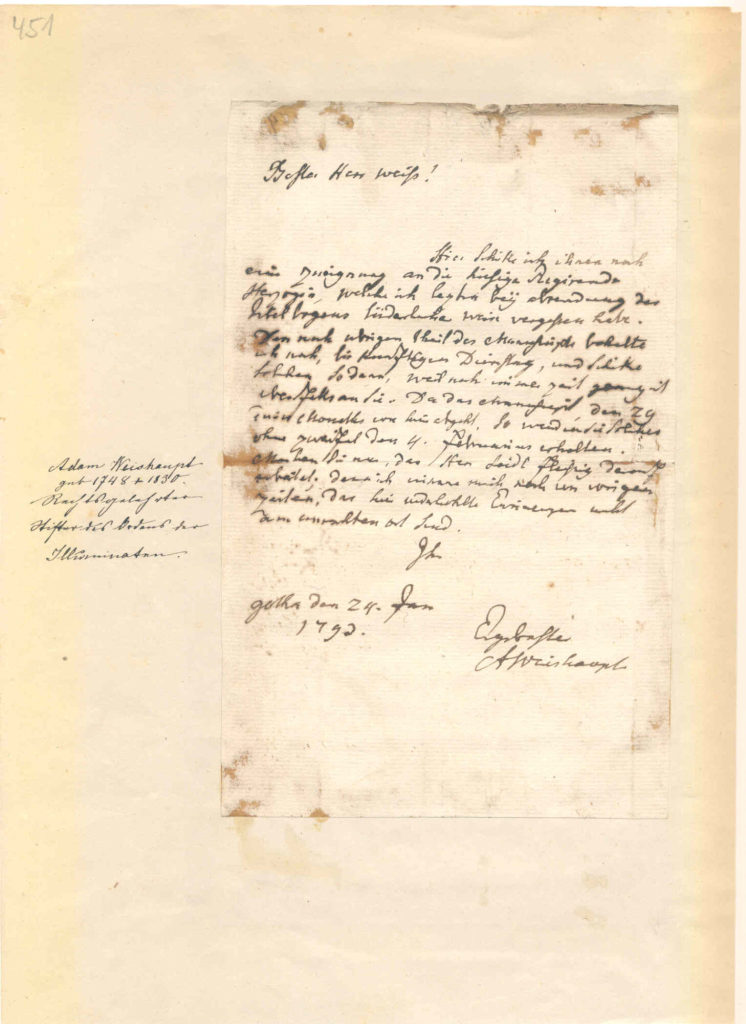 451
Bester Herr weiß!
Hier schike ich ihnen noch
eine zueignung an die hiesige Regirende
Herzogin, welche ich leztin bey absendung des
titelbogens lüderlicher weise vergessen habe.
Den noch übrigen theil des Manuscripts behalte
ich noch, bis künftigen Dienstag, und schike
solchen sodann, weil noch immer zeit genug ist
an Sie. Da das Manuscript den 29
Monaths von hier abgeht, so werden sie solches
ohne zweifel den 4. Februarius erhalten.
Machen Sie nur, das Herr Seidl fleißig daran
arbeitet, denn ich erinnere mich noch von vorigen
zeiten, das hie wiederhohlte Erinerungen nicht
am unrechten ort sind.
Ihr
gotha den 24. Jan
1793.
Ergebenster
AWeishaupt
Adam Weishaupt
geb 1748 + 1830.
Rechtsgelehrter
Stifter des Ordens der
Illuminaten.